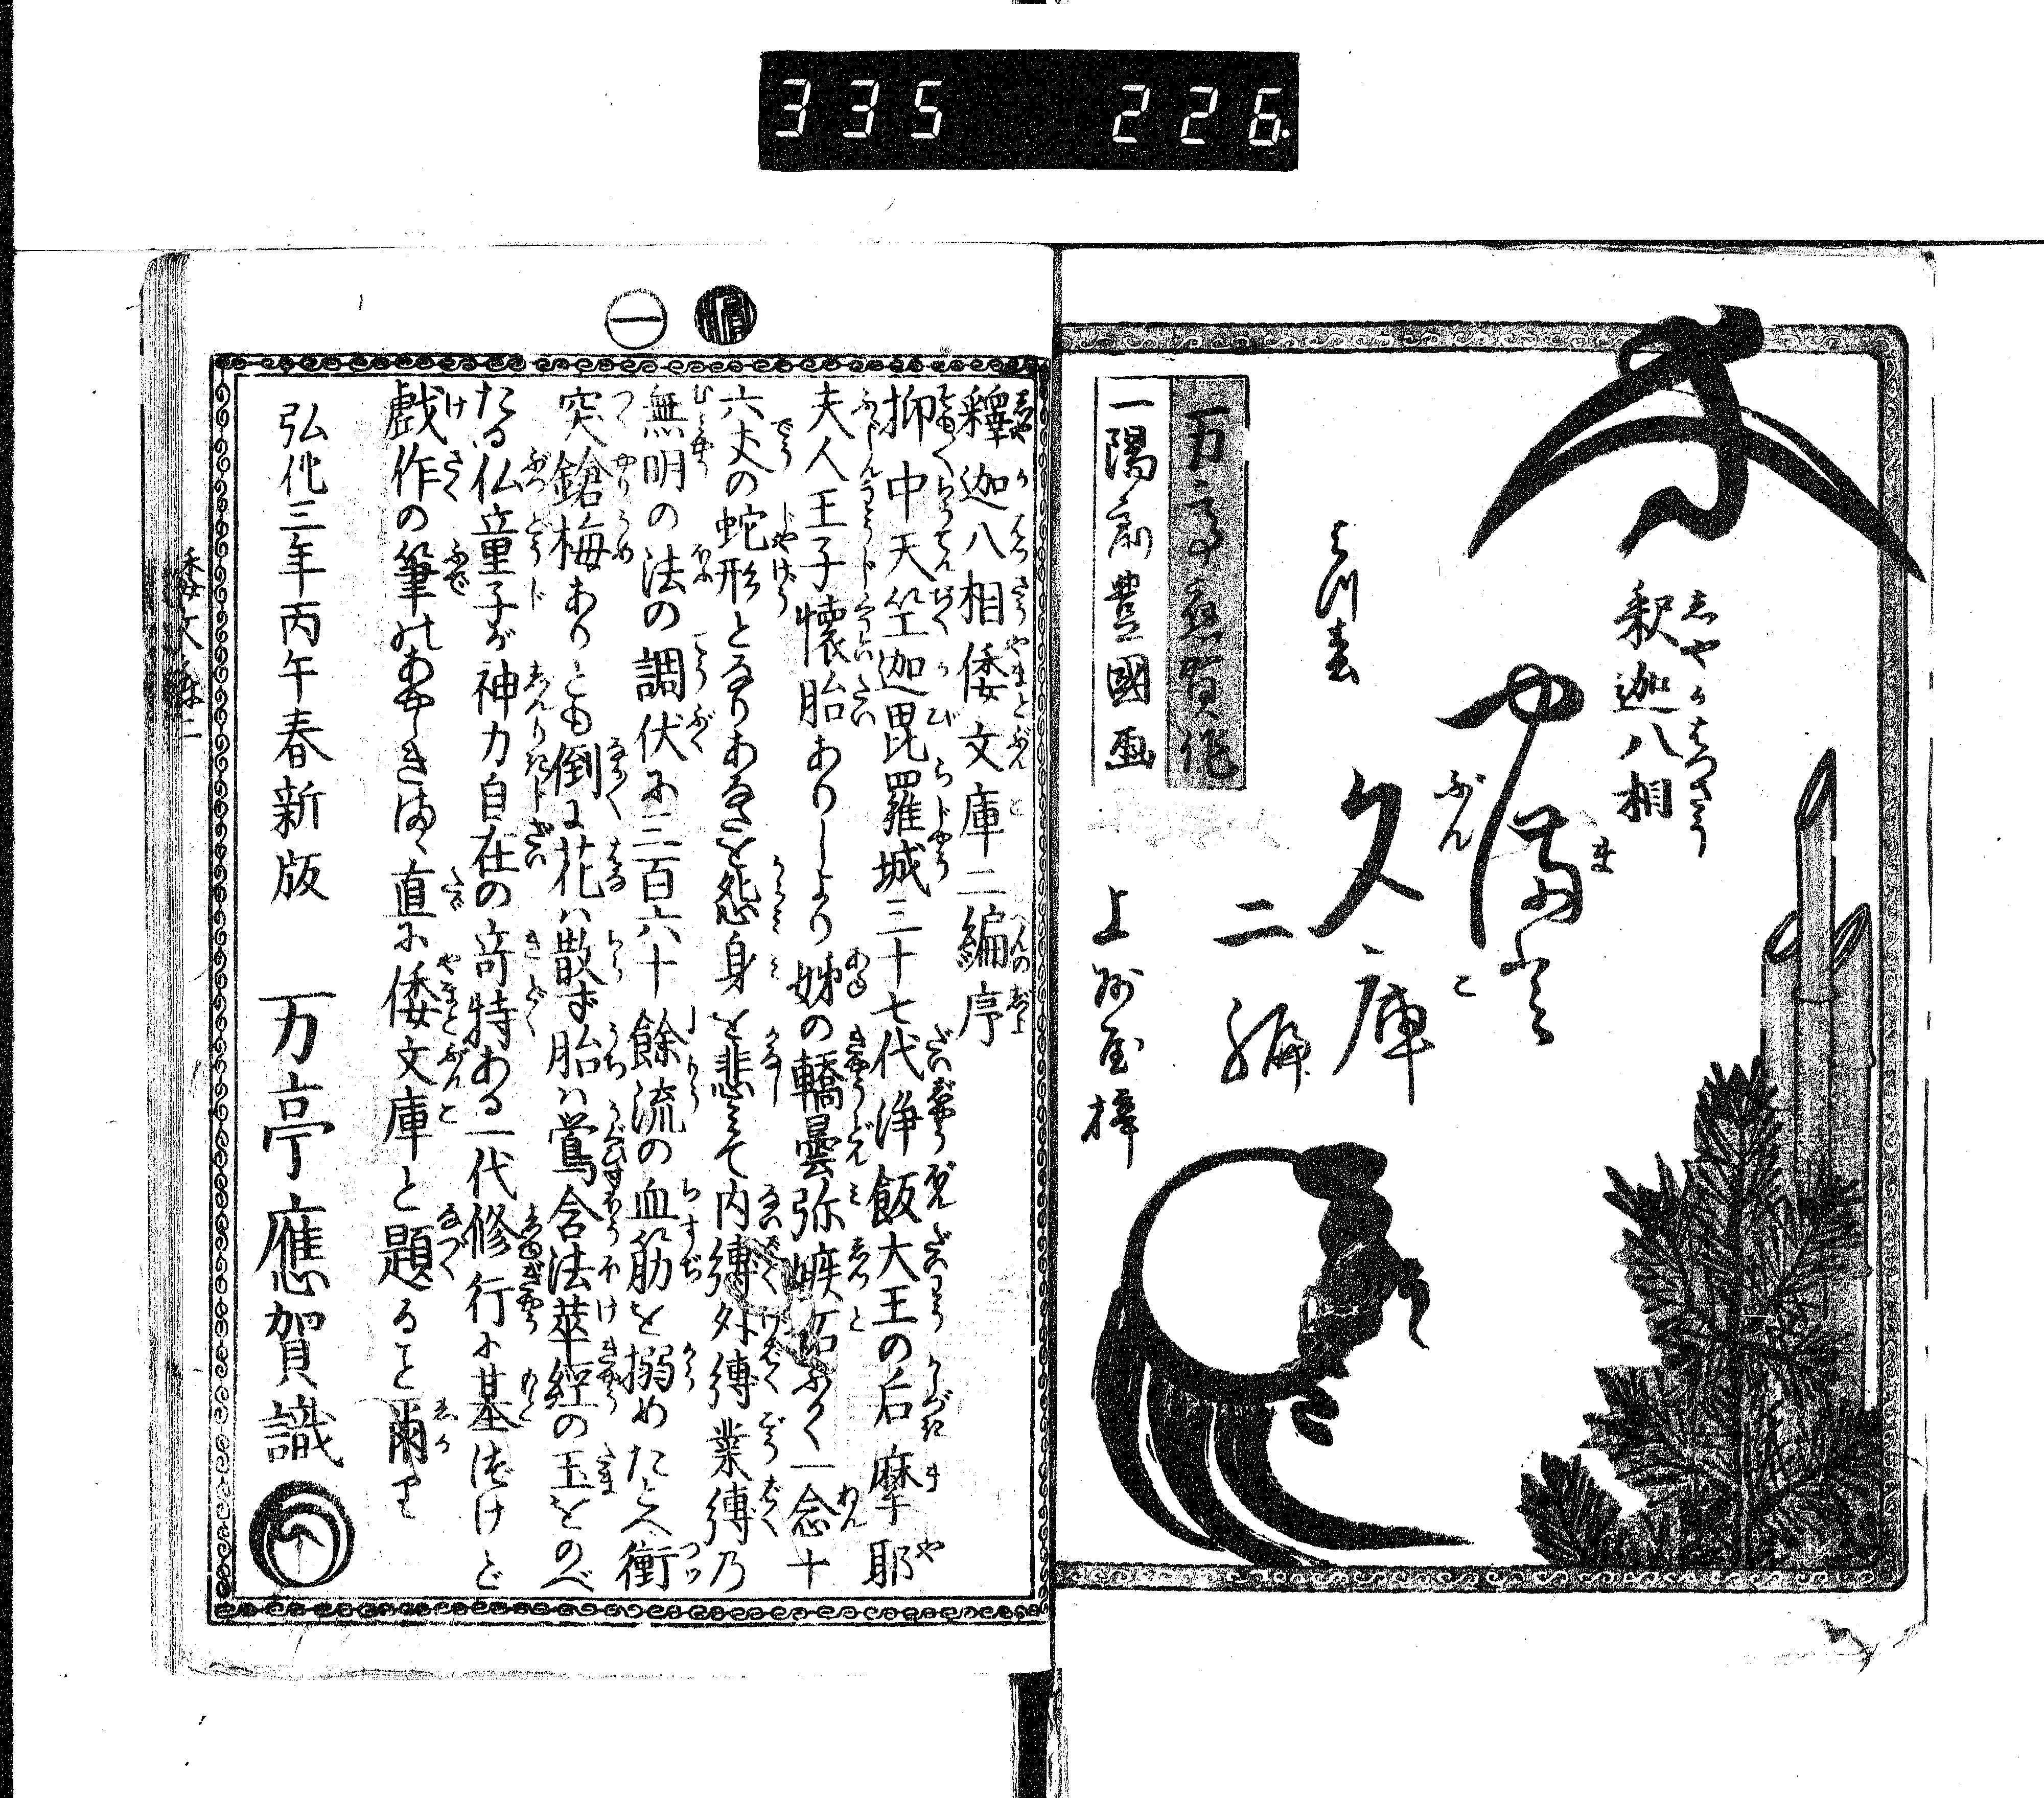 335 226
釈迦八相
しやかはつさう
やま
ぶんこ
文庫
二編
はつ春
万亭應賀作
一陽斎豊國画
上州屋梓
一
釋迦八相倭文庫二編序
抑中天竺迦毘羅城三十七代浄飯大王の后摩耶
夫人王子懐胎ありしより姊の轎曇弥嫉妬ふかく一念十
六丈の蛇形となりあるを怨身を悲て内縛外縛業縛乃
無明の法の調伏に三百六十餘流の血筋を搦めたとへ衝
突鎗梅ありとも倒に花ハ散ず胎ハ鴬含法華経の玉をのべ
たる仏童子が神力自在の竒特ある一代修行に基づけど
戯作の筆のあやしき侭直に倭文庫と題ること爾り
弘化三年丙午春新版
万亭應賀識
倭文庫二